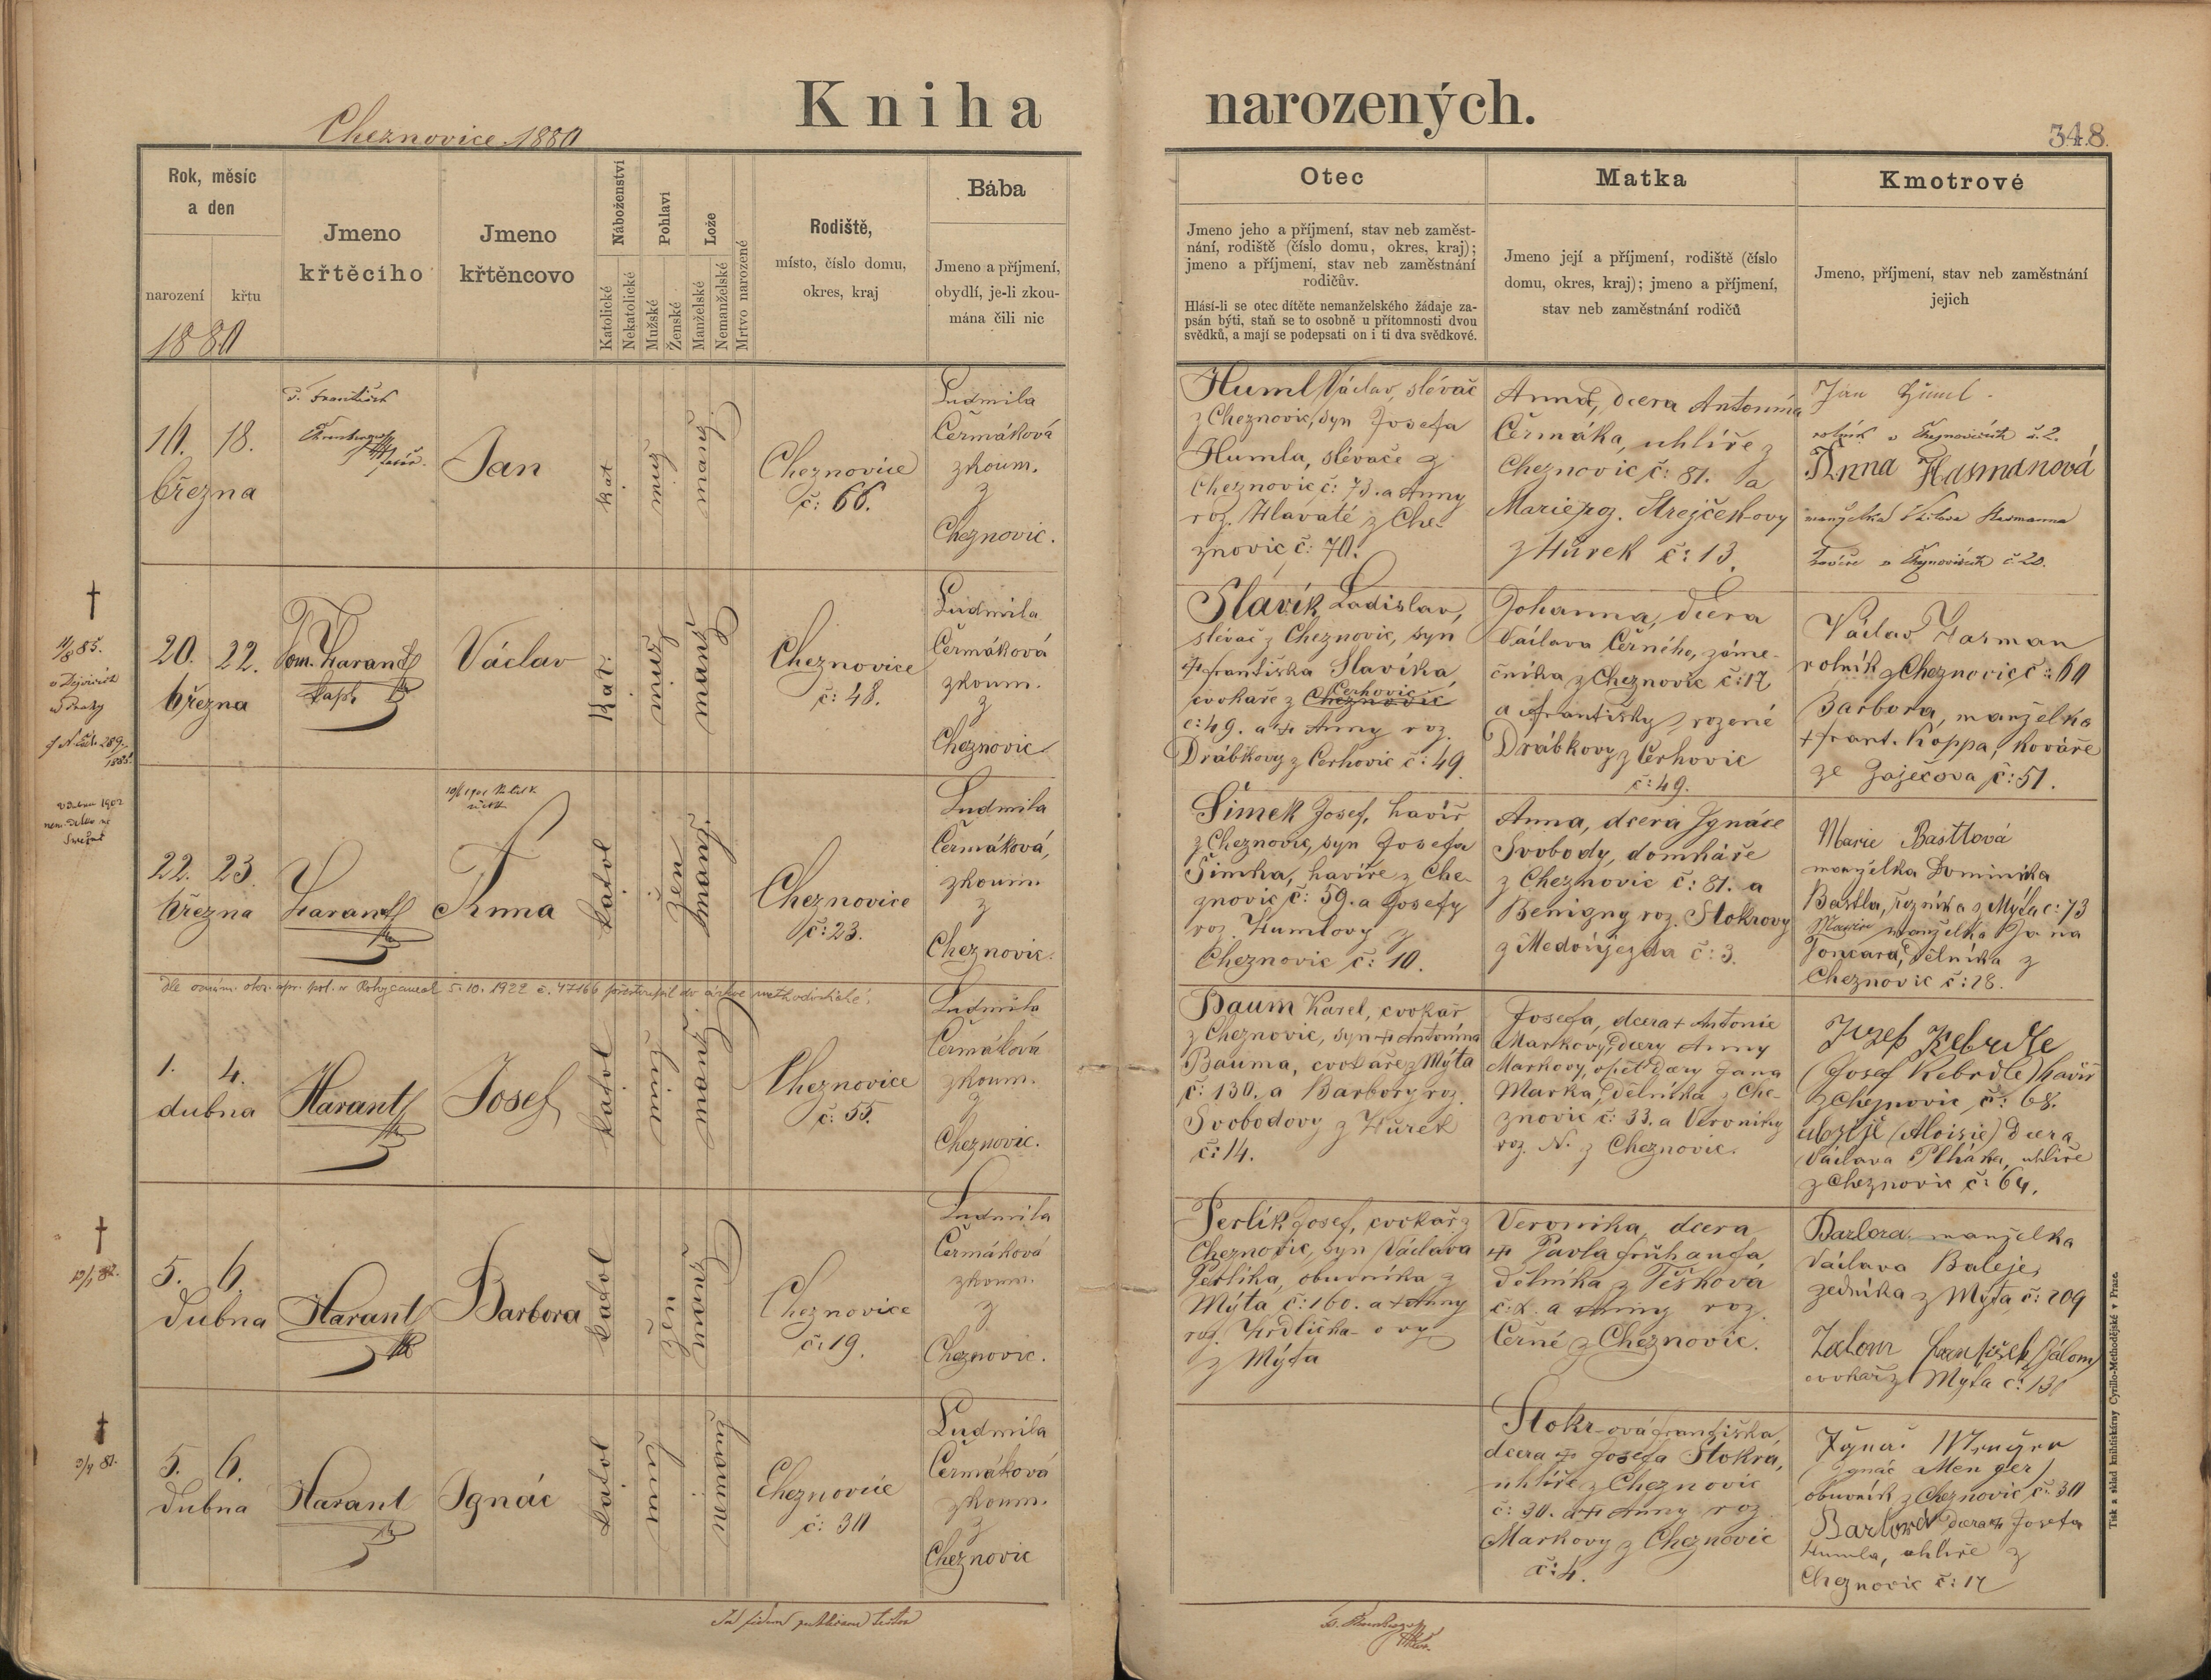 Kniha narozených.
Cheznovice 1880
348.
Rok, měsíc
a den
narození
křtu
1880
Jmeno
křtěcího
Jmeno
křtěncovo
Náboženství
Katolické
Nekatolické
Pohlaví
Mužské
Ženské
Lože
Manželské
Nemanželské
Mrtvo narozené
Rodiště,
místo, číslo domu,
okres, kraj
Bába
Jmeno a příjmení,
obydlí, je-li zkou-
mána čili nic
Otec
Jmeno jeho a příjmení, stav neb zaměst-
nání, rodiště (číslo domu, okres, kraj);
jmeno a příjmení, stav neb zaměstnání
rodičův.
Hlásí-li se otec dítěte nemanželského žádaje za-
psán býti, staň se to osobně u přítomnosti dvou
svědků, a mají se podepsati on i ti dva svědkové.
Matka
Jmeno její a příjmení, rodiště (číslo
domu, okres, kraj); jmeno a příjmení,
stav neb zaměstnání rodičů
Kmotrové
Jmeno, příjmení, stav neb zaměstnání
jejich
18.
března
P. František
Jan
kat
muž
manž
Cheznovice
č: 66.
Ludmila
Čermáková
zkoum.
z
Cheznovic.
Huml Václav, slévač
z Cheznovic, syn Josefa
Humla, slévače z
Cheznovic č: 73. a Anny
roz. Hlavaté z Che-
znovic č: 70.
Anna, dcera Antonína
Čermáka, uhlíře z
Cheznovic č: 81. a
Marie roz. Strejčkovy
z Hůrek č: 13.
Jan Huml.
rolník v Cheznovicích č. 2.
Anna Hasmanová
manželka Václava Hasmanna
v Cheznovicích č 20.
†
11/8 85.
20. 22.
března
Harant
kapl.
Václav
Kat.
muž
manž
Cheznovice
č: 48.
Ludmila
Čermáková
zkoum.
z
Cheznovic
Slavík Ladislav,
slévač z Cheznovic, syn
† Františka Slavíka,
cvokaře z Cheznovic Cerhovic
č: 49. a † Anny roz.
Drábkovy z Cerhovic č: 49.
Johanna, dcera
Václava Černého, záme-
čníka z Cheznovic č: 17
a Františky rozené
Drábkovy z Cerhovic
č: 49.
Václav Hasman
rolník z Cheznovic č: 60
Barbora, manželka
† Frant. Koppa, kováře
ze Zaječova č: 51.
22. 23.
března
Harant
Anna
katol
žen
manž
Cheznovice
č: 23.
Ludmila
Čermáková,
zkoum
z
Cheznovic.
Šimek Josef, havíř
z Cheznovic, syn Josefa
Šimka, havíře z Che-
znovic č: 59. a Josefy
roz. Humlovy z
Cheznovic č: 10.
Anna, dcera Ignáce
Svobody, domkáře
z Cheznovic č: 81. a
Benigny roz. Stokrovy
z Medoújezda č: 3.
Marie Bastlová
manželka Dominika
Bastla, řezníka z Mýta č: 73
Marie manželka Jana
Joncara, dělníka z
Cheznovic č: 28.
Dle oznám. okr. spr. pol. v Rokycanech 5. 10. 1922 č. 47166 přestoupil do církve methodistické.
1. 4.
dubna
Harant
Josef
katol
muž
manž
Cheznovice
č: 55.
Ludmila
Čermáková
zkoum.
z
Cheznovic.
Baum Karel, cvokař
z Cheznovic, syn † Antonína
Bauma, cvokaře z Mýta
č: 130. a Barbory roz.
Svobodovy z Hůrek
č: 14.
Josefa, dcera † Antonie
Markovy, dcery Anny
Markovy, opět dcery Jana
Marka, dělníka z Che-
znovic č: 33. a Veroniky
roz. N. z Cheznovic.
Jozef Kebrdle
(Josef Kebrdle) havíř
z Cheznovic č: 68.
(Aloisie) dcera
Václava Plháka, uhlíře
z Cheznovic č: 64.
†
5. 6.
dubna
Harant
Barbora
katol
žen
manž
Cheznovice
č: 19.
Ludmila
Čermáková
zkoum.
z
Cheznovic.
Perlík Josef, cvokař z
Cheznovic, syn Václava
Perlíka, obuvníka z
Mýta, č: 160. a † Anny
roz. Hrdličkovy
z Mýta
Veronika, dcera
† Pavla Frühaufa
dělníka z Těškova
č: 2. a Anny roz.
Černé z Cheznovic.
Barbora manželka
Václava Baleje,
zedníka z Mýta č: 209
Zalom František (Zálom)
cvokař z Mýta č: 130
†
5. 6.
dubna
Harant
Ignác
katol
muž
nemanž
Cheznovice
č: 30
Ludmila
Čermáková
zkoum.
z
Cheznovic
Stokrová Františka,
dcera † Josefa Stokra,
uhlíře z Cheznovic
č: 30. a † Anny roz
Markovy z Cheznovic
č: 4.
(Ignác Menger)
obuvník z Cheznovic č: 30
Barbora dcera † Josefa
Humla, uhlíře z
Cheznovic č: 17
Ad fidem publicam testor
Tisk a sklad knihtiskárny Cyrillo-Methodějské v Praze.